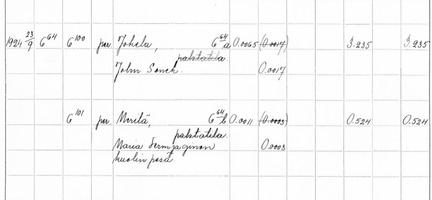 1924 23/9 6⁶⁴ 6¹⁰⁰ per. Jokela, 6⁶⁴a 0.0065 (0.0017) 3.235 3.235
palstatila.
John Sanck. 0.0017
6¹⁰¹ per. Merelä, 6⁶⁴b 0.0011 (0.0003) 0.524 0.524
palstatila.
Maria 0.0003
kuolin pesä